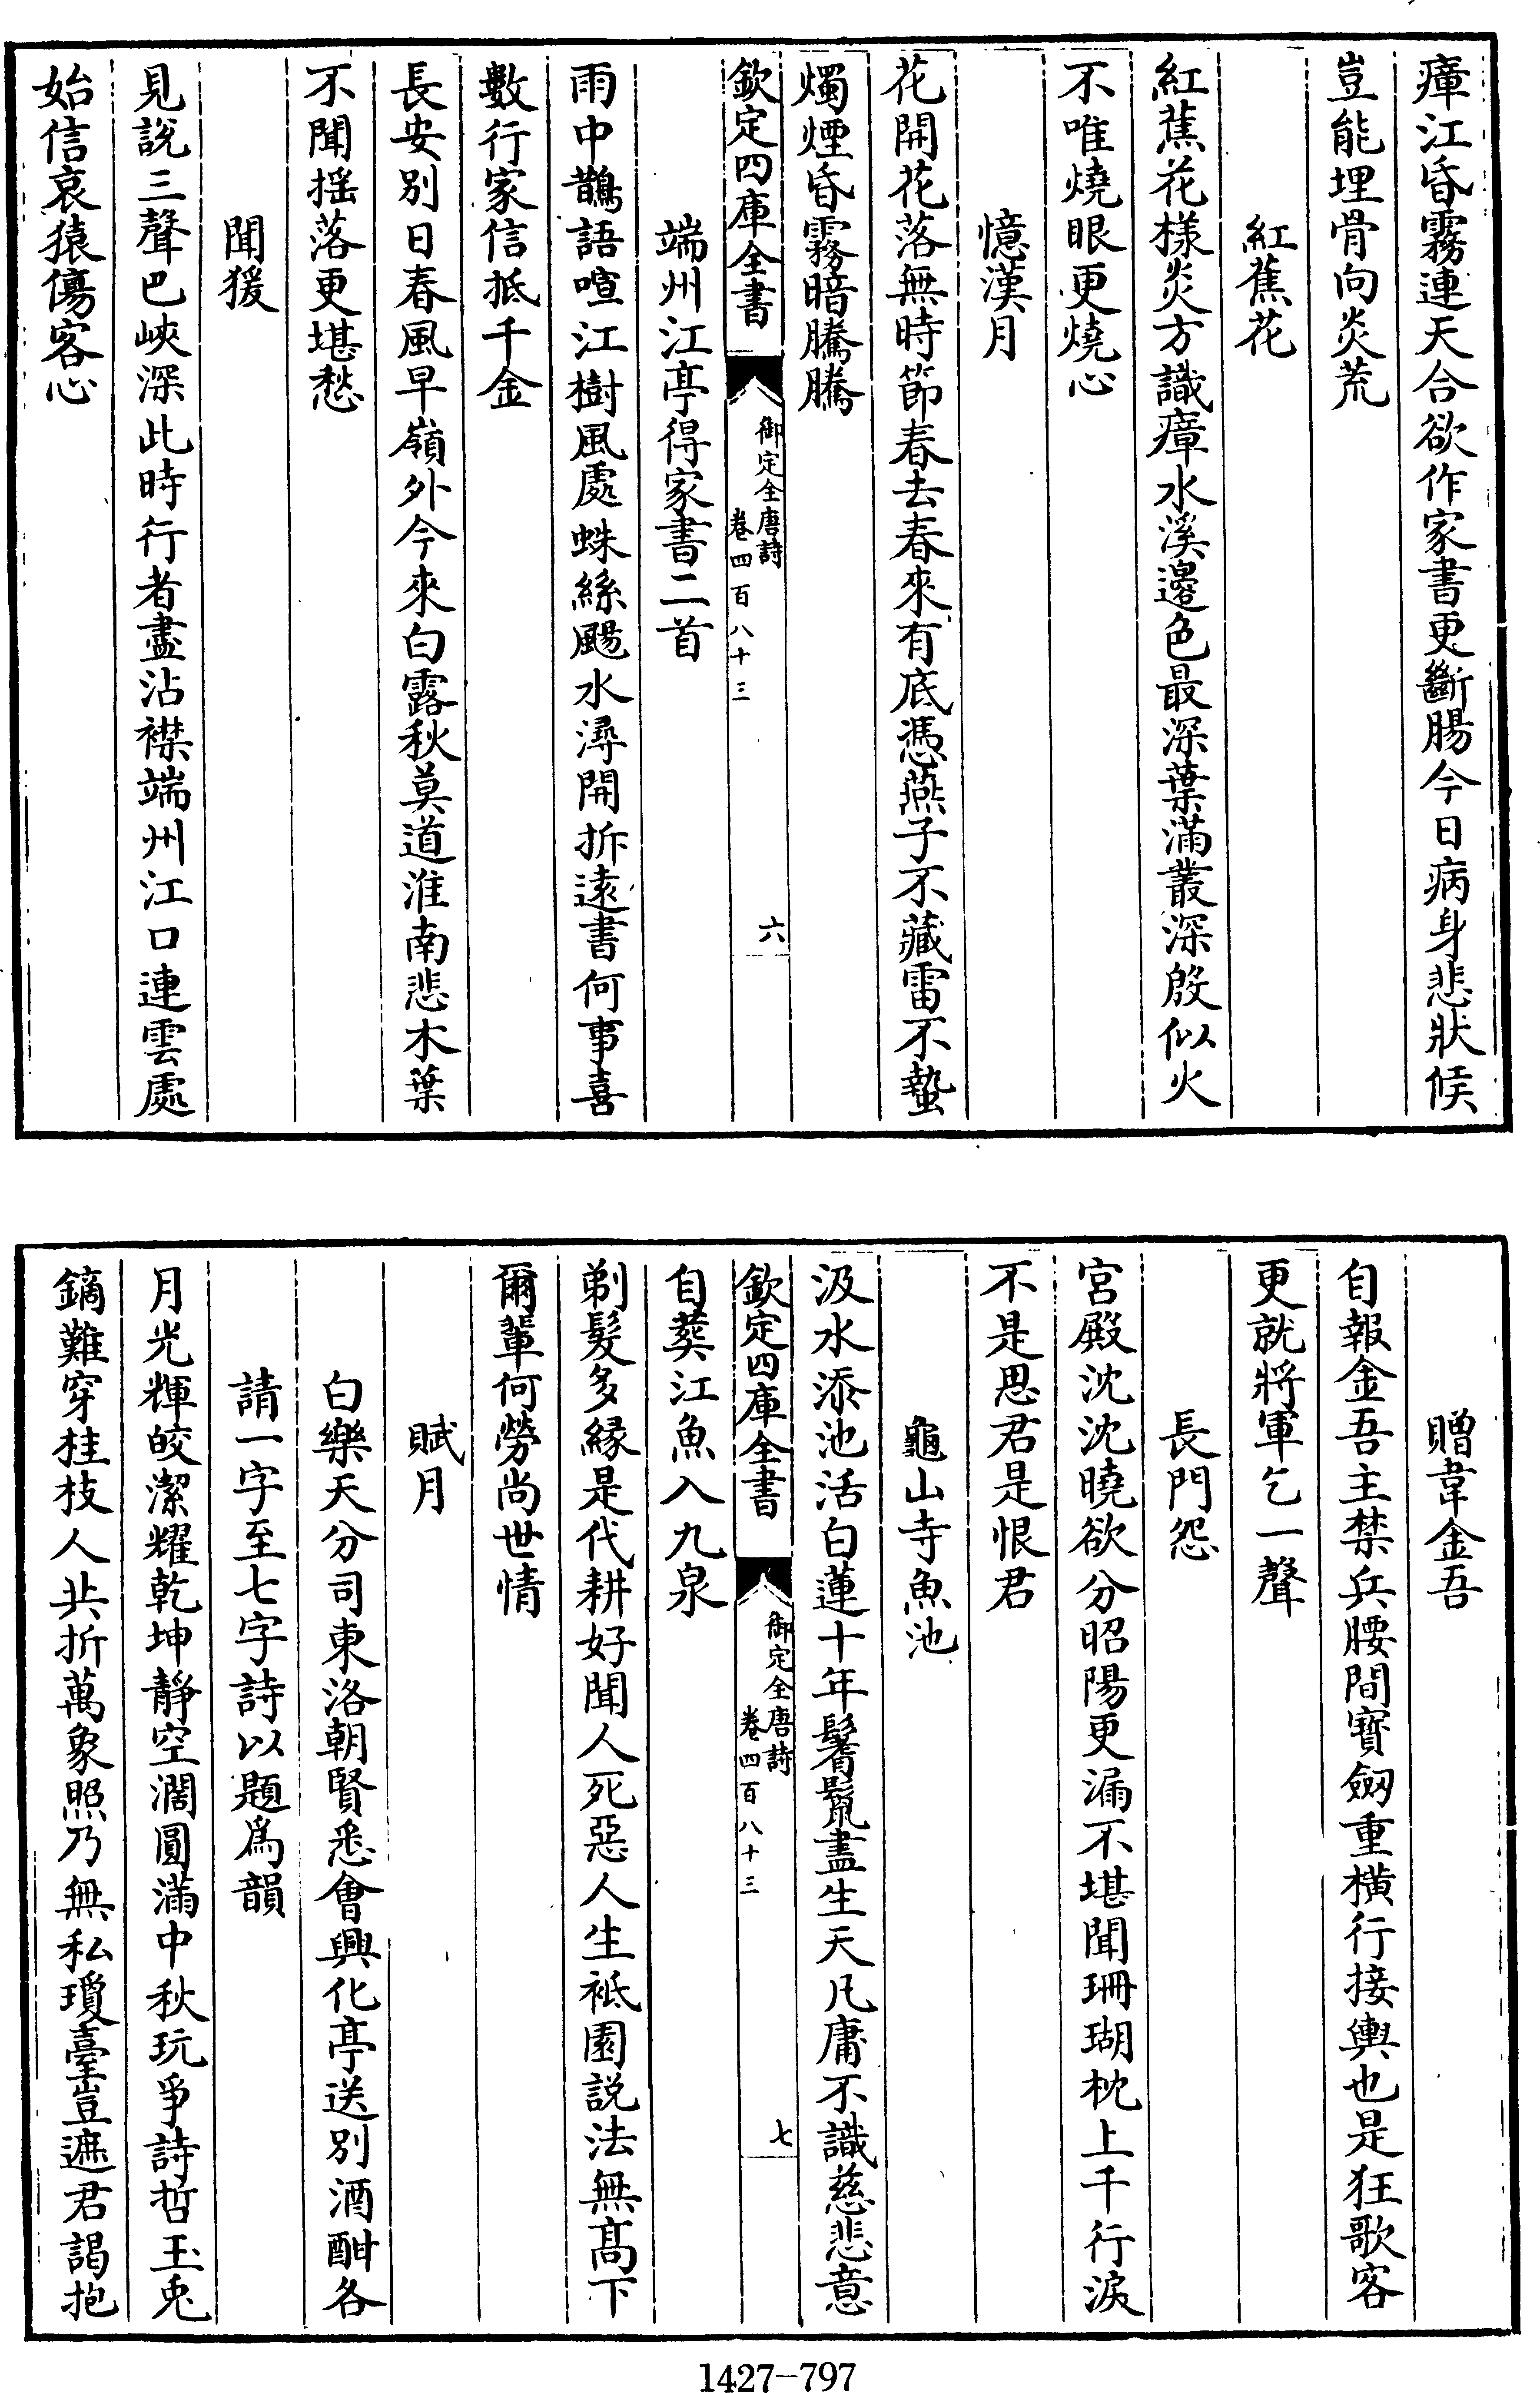 瘴江昏霧連天合欲作家書更斷腸今日病身悲狀候
豈能埋骨向炎荒
紅蕉花
紅蕉花樣炎方識瘴水溪邊色最深葉滿叢深殷似火
不唯燒眼更燒心
憶漢月
花開花落無時節春去春來有底憑燕子不藏雷不蟄
燭煙昏霧暗騰騰
欽定四庫全書
御定全唐詩
卷四百八十三
六
端州江亭得家書二首
雨中鵲語喧江樹風處蛛絲颺水潯開拆遠書何事喜
數行家信抵千金
長安別日春風早嶺外今來白露秋莫道淮南悲木葉
不聞揺落更堪愁
聞猨
見說三聲巴峽深此時行者盡沾襟端州江口連雲處
始信哀猿傷客心
贈韋金吾
自報金吾主禁兵腰間寶劒重橫行接輿也是狂歌客
更就將軍乞一聲
長門怨
宮殿沈沈曉欲分昭陽更漏不堪聞珊瑚枕上千行淚
不是思君是恨君
龜山寺魚池
汲水添池活白蓮十年鬐鬛盡生天凡庸不識慈悲意
自葬江魚入九泉
剃髮多緣是代耕好聞人死惡人生祗園說法無髙下
爾輩何勞尚世情
賦月
白樂天分司東洛朝賢悉會興化亭送別酒酣各
請一字至七字詩以題爲韻
月光輝皎潔耀乾坤靜空濶圓滿中秋玩爭詩哲玉兎
鏑難穿桂枝人共折萬象照乃無私瓊臺豈遮君謁抱
1427-797